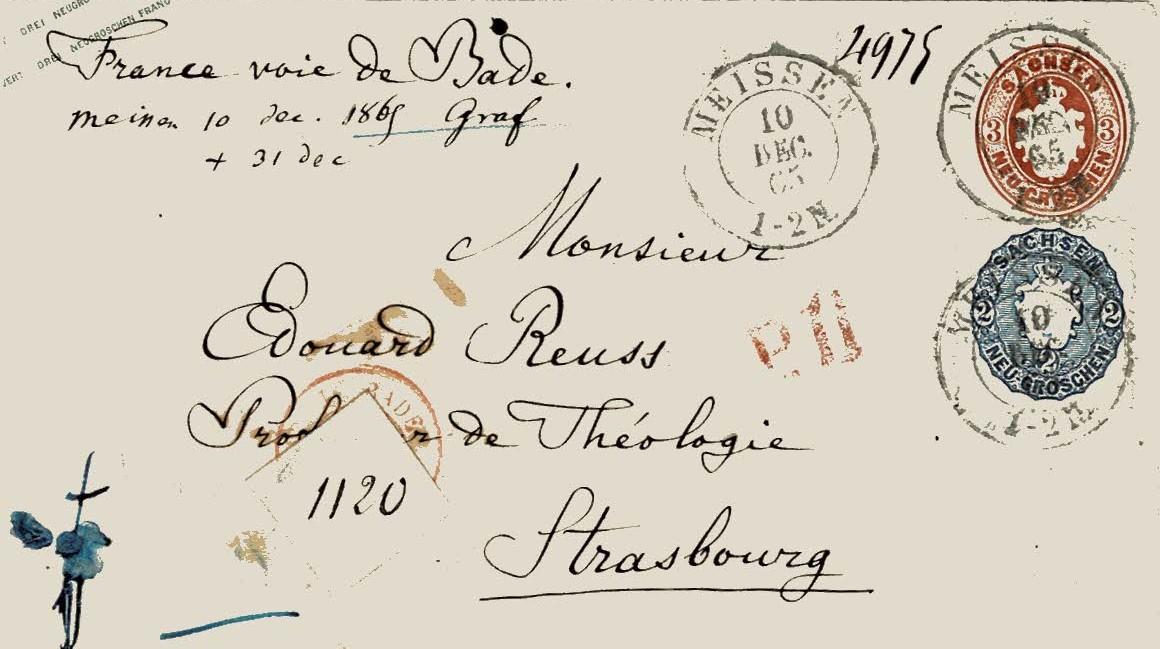 DREI NEUGROSCHEN
DREI NEUGROSCHEN FRANCO
France voie de Bade.
meinen 10 dec. 1865 Graf
+ 31 dec
4975
MEISSEN
10
DEC.
65
1-2 N.
MEISSEN
10
DEC
65
SACHSEN
3 3
NEUGROSCHEN
Monsieur
SACHSEN
2 2
2
NEU-GROSCHEN
10
1-2 N.
Edouard Reuss
BADE
de Théologie
1120
Strasbourg